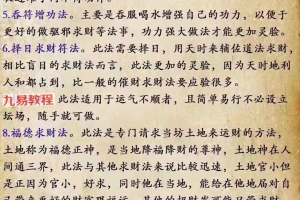 5.吞符增功法。主要是吞服喝水增强自己的功力，以便于
更好的做驱邪求财等法事，功力强大做法才能更加灵验。
6.择日求财符法。此法需要择日，用天时来辅佐道法求财，
相比盲目的求财法，而且此法更加的灵验。因为天时地利
人和都占到，比一般的催财求财法要应验很多。
九易教程
此法适用于运气不顺者，且简单易行不必设立
坛场，随手就可做。
8.福德求财法。此法是专门请求当坊土地来运财的方法，
土地称为福德正神，是当地降福降财的尊神，土地神在人
间通三界，此法与其他求财法来说比较迅速，土地官小但
是正因为官小，好求，同时他在当地，能给在他地届对自